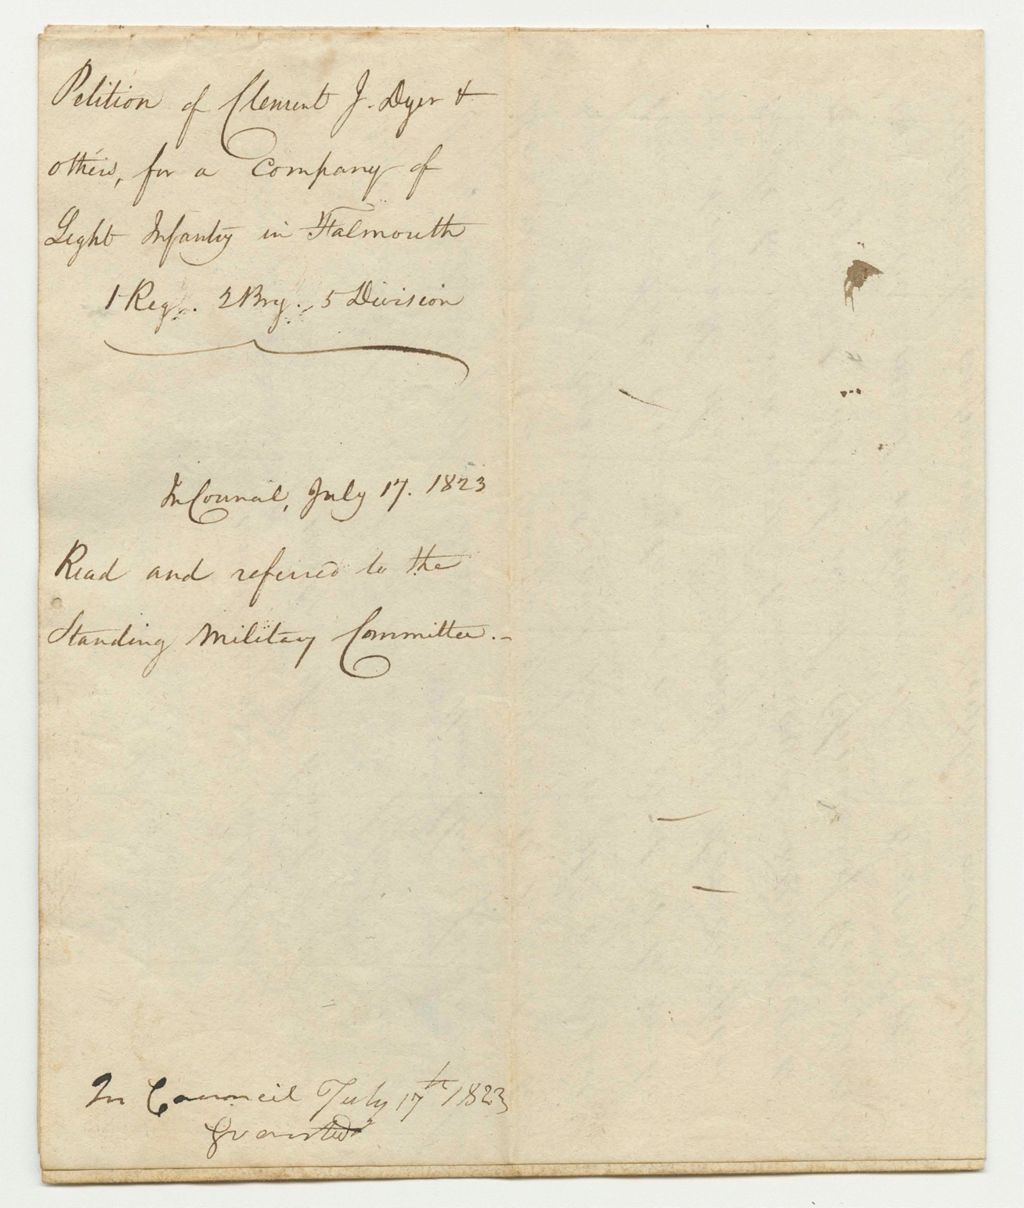 Petition of Clement J. Dyer &
others, for a Company of
Light Infantry in Falmouth
1 Reg. 2 Brig. 5 Division
In Council, July 17. 1823
Read and referred to the
Standing Military Committee.-
In Council July 17th 1823
Granted